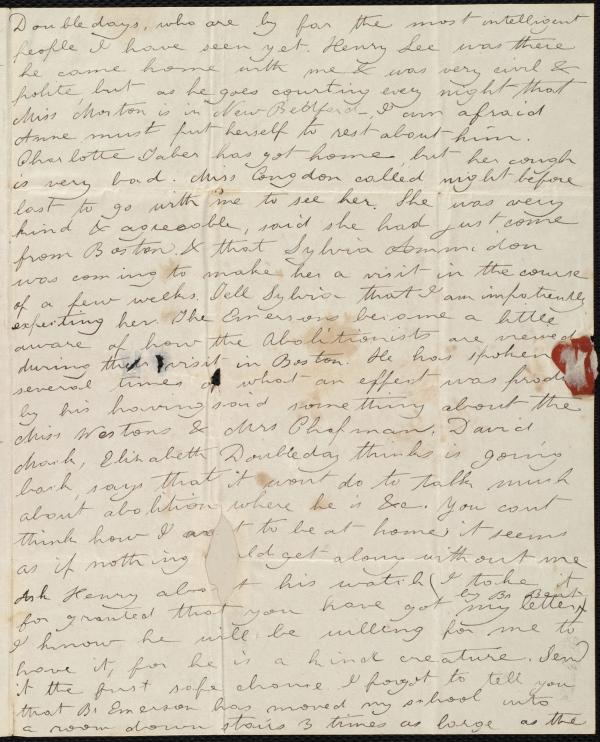 Doubledays, who are by far the most intelligent
people I have seen yet. Henry Lee was there
he came home with me & was very civil &
polite, but as he goes courting every night that
Miss Morton is in New Bedford, I am afraid
Anne must put herself to rest about him.
Charlotte Taber has got home, but her cough
is very bad. Miss Congdon called night before
last to go with me to see her. She was very
kind & agreeable, said she had just come
from Boston & that Sylvia Ammidon
was coming to make her a visit in the course
of a few weeks. Tell Sylvia that I am impatiently
expecting her. The Emersons became a little
aware of how the Abolitionists are viewed
during their visit in Boston. He has spoken
several times of what an effect was prod
by his having said something about the
Miss Westons & Mrs Chapman. David
Mack, Elizabeth Doubleday thinks is going
back, says that it wont do to talk much
about abolition where he is &c. You cant
think how I want to be at home; it seems
as if nothing ld get along without me
Ask Henry about his watch (I take it
for granted that you have got my letter by Br
I know he will be willing for me to
have it, for he is a kind creature. Send
it the first safe chance. I forgot to tell you
that Br Emerson has moved my school into
a room down stairs 3 times as large as the